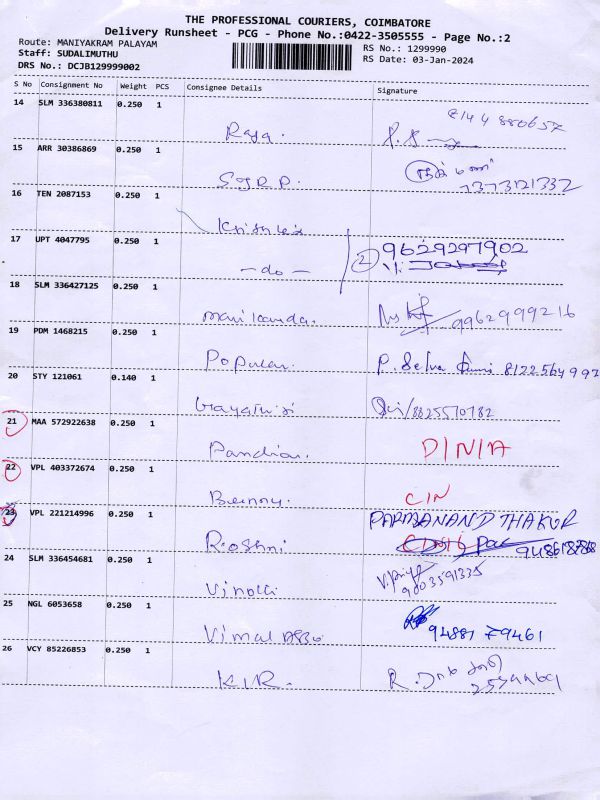 THE PROFESSIONAL COURIERS, COIMBATORE
Delivery Runsheet - PCG - Phone No.:0422-3505555 - Page No.:2
Route: MANIYAKRAM PALAYAM
RS No.: 1299990
Staff: SUDALIMUTHU
RS Date: 03-Jan-2024
DRS No.: DCJB129999002
S No Consignment No Weight PCS Consignee Details Signature
14 SLM 336380811 0.250 1
Raja.
8144880657
15 ARR 30386869 0.250 1
7373121332
16 TEN 2087153 0.250 1
17 UPT 4047795 0.250 1
- do -
2 9629297902
18 SLM 336427125 0.250 1
Manikanda.
9962999216
19 PDM 1468215 0.250 1
Popular.
P. Selva 8122564992
20 STY 121061 0.140 1
Gayathiri
8825570782
21 MAA 572922638 0.250 1
Pandian.
D/N/A
22 VPL 403372674 0.250 1
Benny.
C/N
23 VPL 221214996 0.250 1
Roshni
PARMANAND THAKUR
24 SLM 336454681 0.250 1
9003591335
25 NGL 6053658 0.250 1
Vimal
94881 79461
26 VCY 85226853 0.250 1
K.I.R.